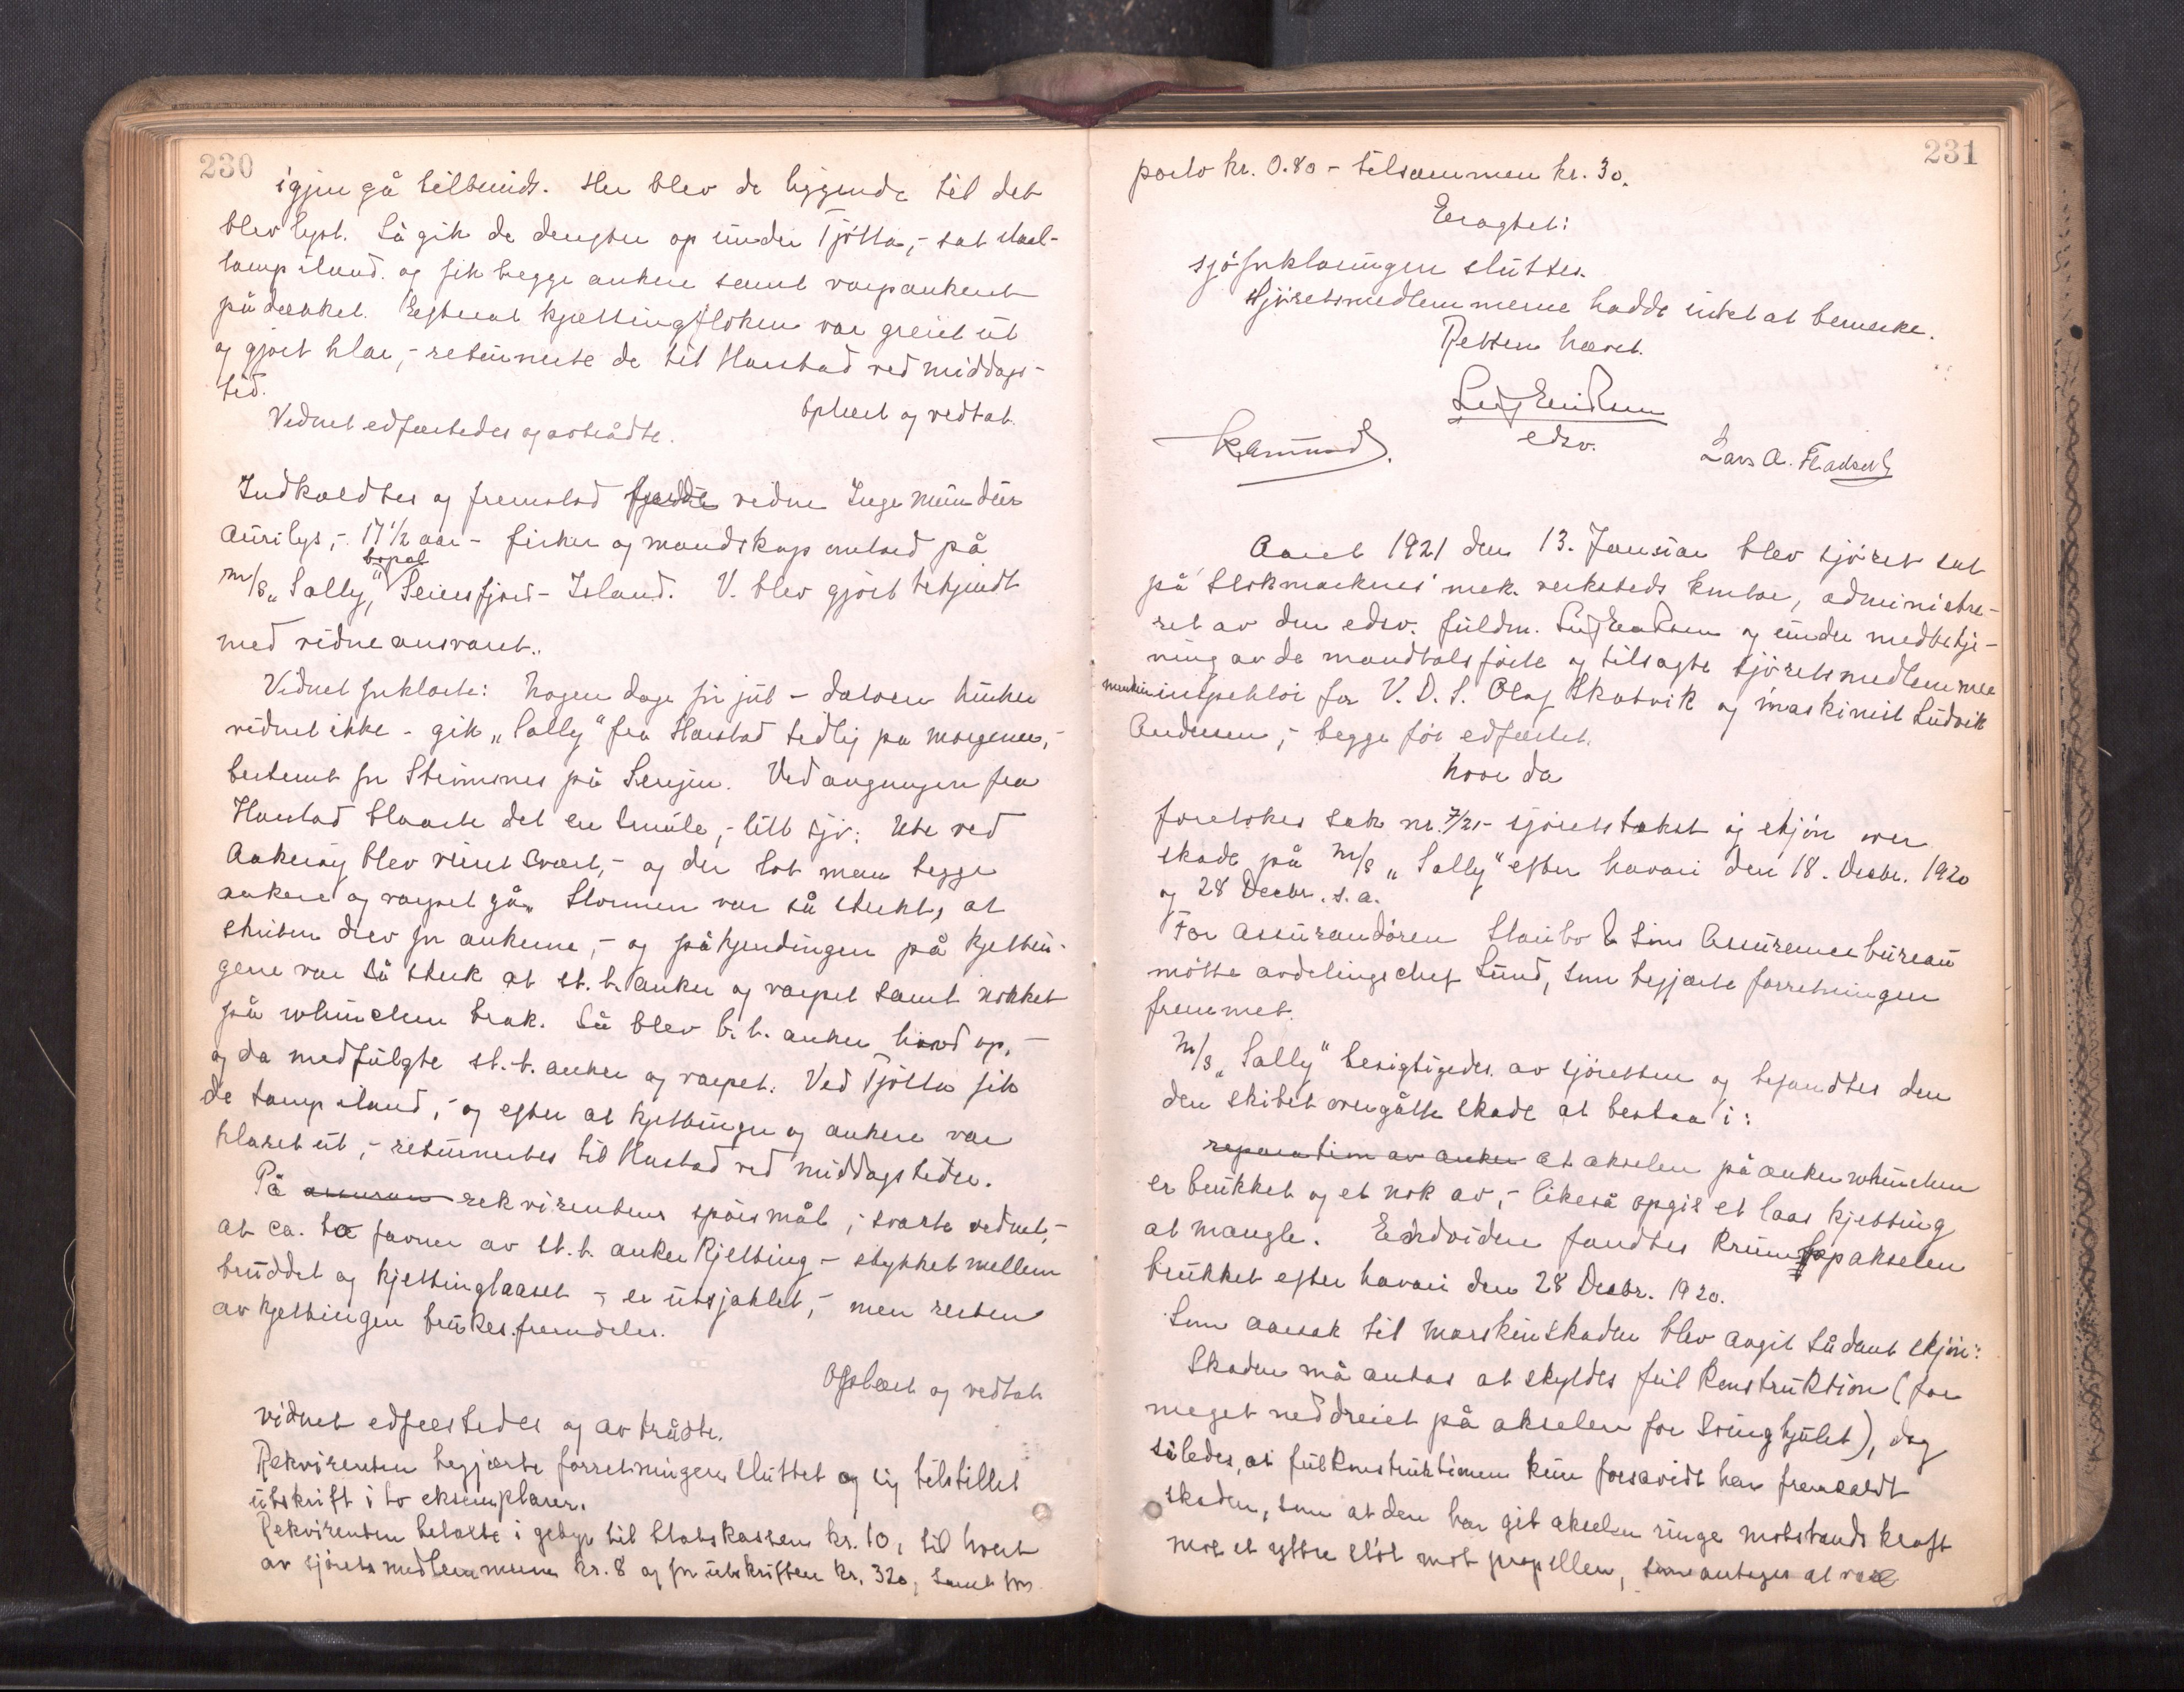 230
igjen gå tilbunds. Her blev de liggende til det
blev lyst. Så gik de derefter op under Tjötta, - sat staal-
tamp iland og fik begge ankere samt varpankeret
på dækket. Efterat kjættingfloken var greiet ut
og gjort klar, - returnerte de til Harstad ved middags-
tid.
Oplæst og vedtat.
Vidnet edfæstedes og avtrådte.
Indkaldtes og fremstod fjerde vidne Inge Mundur
Aurilys, - 17 1/2 aar - fisker og mandskap ombord på
bopæl
m/s "Sally", Seiersfjord - Island. V. blev gjort bekjendt
med vidneansvaret.
Vidnet forklarte: Nogen dage før jul - datoen husker
vidnet ikke - gik "Sally" fra Harstad tidlig på morgenen, -
bestemt for Steinsnes på Senjen. Ved avgangen fra
Harstad blaaste det en smule, - litt sjø. Ute ved
Ankenøy blev veiret svært, - og der lot man begge
ankere og varpet gå. Stormen var så sterk, at
skuten drev for ankerne, - og påkjendingen på kjettin-
gene var så sterk at st. b. anker og varpet samt nokket
på whinchen brak. Så blev b. b. anker hivd op, -
og da medfulgte st. b. anker og varpet. Ved Tjötta fik
de tamp iland, - og efter at kjettinger og ankere var
klaret ut, - returnertes til Harstad ved middagstider.
På assuran rekvirentens spörsmål, svarte vidnet, -
at ca. to favner av st. b. anker kjetting - stykket mellem
bruddet og kjettinglaaset - er utsjaklet, - men resten
av kjettingen brukes fremdeles.
Oplæst og vedtat
vidnet edfæstedes og avtrådte.
Rekvirenten begjærte forretningen sluttet og sig tilstillet
utskrift i to eksemplarer.
Rekvirenten betalte i gebyr til Statskassen kr. 10, til hvert
av sjöretsmedlemmene kr. 8 og for utskriften kr. 3.20, samt for
231
porto kr. 0.80 - tilsammen kr. 30.
Eragtet:
sjöforklaringen sluttes.
Sjöretsmedlemmerne hadde intet at bemerke.
Retten hævet.
Leif Eriksen
edsv.
K. Amund
Lars A. Fladseth
Aaret 1921 den 13. Januar blev sjöret sat
på Stokmarknes mek. verksteds kontor, administre-
ret av den edsv. fuldm. Leif Eriksen og under medbetje-
ning av de mandtalsförte og tilsagte sjöretsmedlemmer
maskininspektör for V. D. S. Olaf Skotvik og maskinist Ludvik
Andersen, - begge för edfæstet.
hvor da
foretokes sak nr. 7/21 - sjöretstakst og skjön over
skade på m/s "Sally" efter havari den 18. Decbr. 1920
og 28 Decbr. s. a.
For Assurandören Staubo & Söns Assurancebureau
mötte avdelingschef Lund, som begjærte forretningen
fremmet.
m/s "Sally" besigtigedes av sjöretten og befandtes den
den skibet overgåtte skade at bestaa i:
reparation av anker at akselen på ankerwhinchen
er brukket og et nok av, - likeså opgis et laas kjetting
at mangle. Endvidere fandtes krumtapakselen
brukket efter havari den 28 Decbr. 1920.
Som aarsak til maskinskaden blev avgit sådant skjön:
Skaden må antas at skyldes feil konstruktion (for
meget neddreiet på akselen for svinghjulet), dog
således, at feilkonstruktionen kun forsavidt har fremkaldt
skaden, som at den har git akselen ringe motstandskraft
mot et ytre stöt mot propellen, som antages at være